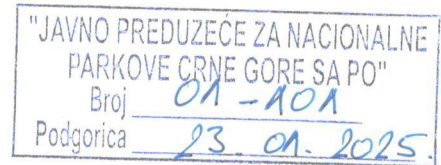 "JAVNO PREDUZEĆE ZA NACIONALNE
PARKOVE CRNE GORE SA PO"
Broj 01-101
Podgorica 23. 01. 2025.